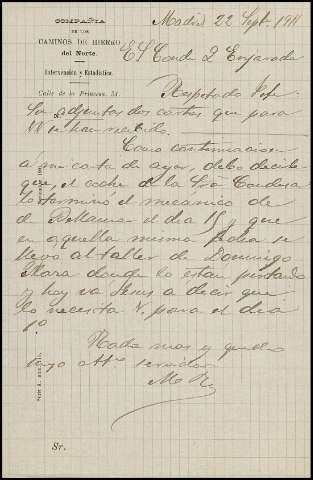 COMPAÑIA
DE LOS
CAMINOS DE HIERRO
del Norte.
Intervención y Estadística.
Calle de la Princesa,
Madrid 22 Sept. 1911
El Conde
Respetado Jefe:
Son adjuntas dos cartas que para
V. se han recibido.
Como continuacion
á mi carta de ayer, debo decirle
que, el coche de la Sra Condesa
lo terminó el mecanico de
el dia 15 y que
en aquella misma fecha se
llevo al taller de Domingo
Mara donde lo estan pintando
y hoy va Jesus a decir que
lo necesita V. para el dia
1º
Nada mas y queda
suyo attº servidor
Sr.